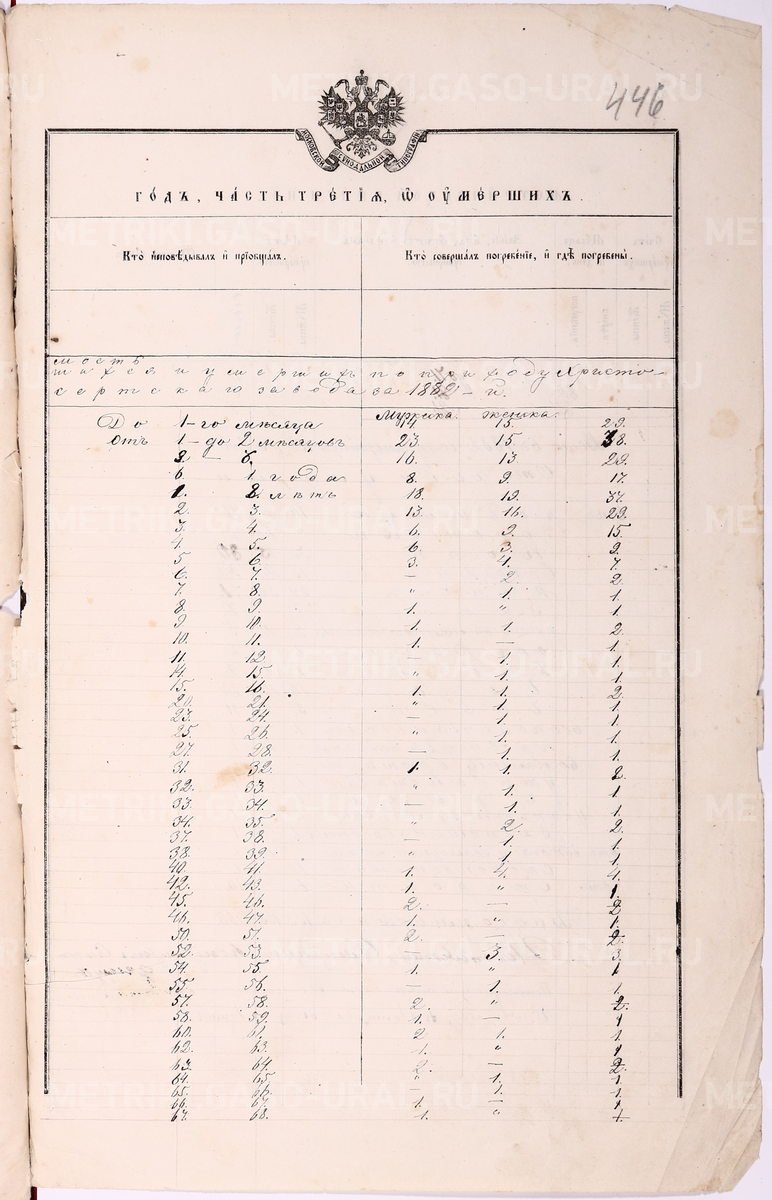 446
МОСКОВСКОЙ СѴНОДАЛЬНОЙ ТИПОГРАФІИ
ГО́ДЪ, ЧА́СТЬ ТРЕ́ТІЯ, Ѡ҆ ОУ҆МЕ́РШИХЪ.
Кто̀ и҆сповѣ́дывалъ и҆ прїѡбща́лъ. Кто̀ соверша́лъ погребе́нїе, и҆ гдѣ̀ погребены̀.
мость
и умершихъ по приходу Христо-
сертскаго завода за 1882-й.
мужска. женска.
До 1-го мѣсяца 14 15. 29.
отъ 1- до 2 мѣсяцовъ 23. 15 38.
2. — 6. 16. 13 29.
6. 1 года 8. 9. 17.
1. 2. лѣтъ 18. 19. 37.
2. 3. 13. 16. 29.
3. 4. 6. 9. 15.
4. 5. 6. 3. 9.
5 6. 3. 4. 7.
6. 7. — 2. 2
7. 8. " 1. 1.
8. 9. 1. " 1
9 10. 1. 1. 2.
10. 11. 1. — 1.
11. 12. — 1. 1.
14. 15. " 1. 1.
15. 16. 1. 1. 2.
20. 21. " 1. 1.
23. 24. — 1. 1.
25. 26. " 1. 1.
27. 28. — 1. 1.
31. 32. 1. 1. 2.
32. 33. " 1. 1
33. 34. — 1. 1.
34. 35. " 2. 2.
37. 38. — 1. 1.
38. 39. " 1. 1.
40. 41. 1. 4. 4.
42. 43. 1. " 1.
45. 46. 2. — 2
46. 47. 1. " 1.
50. 51. 2. — 2.
52. 53. 3. 3.
54. 55. 1. " 1
55 56. 1. 1.
57. 58. 2. " 2.
58. 59. 1. — 1
60. 61. 2 1. 1.
62. 63. 1. " 1
63. 64. 2. — 2.
64. 65 " 1. 1.
65. 66. 1. 1.
66. 67. 1. — 1
67. 68. 1. " 1.
METRIKI.GASO-URAL.RU